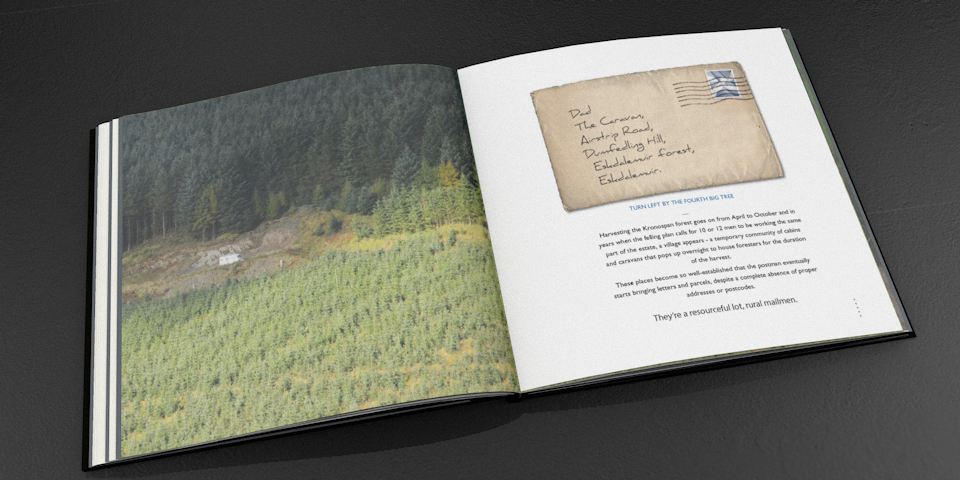 Dad
The Caravan,
Airstrip Road,
Dumfedling Hill,
Eskdalemuir Forest,
Eskdalemuir.
TURN LEFT BY THE FOURTH BIG TREE
Harvesting the Kronospan forest goes on from April to October and in
years when the felling plan calls for 10 or 12 men to be working the same
part of the estate, a village appears - a temporary community of cabins
and caravans that pops up overnight to house foresters for the duration
of the harvest.
These places become so well-established that the postman eventually
starts bringing letters and parcels, despite a complete absence of proper
addresses or postcodes.
They're a resourceful lot, rural mailmen.